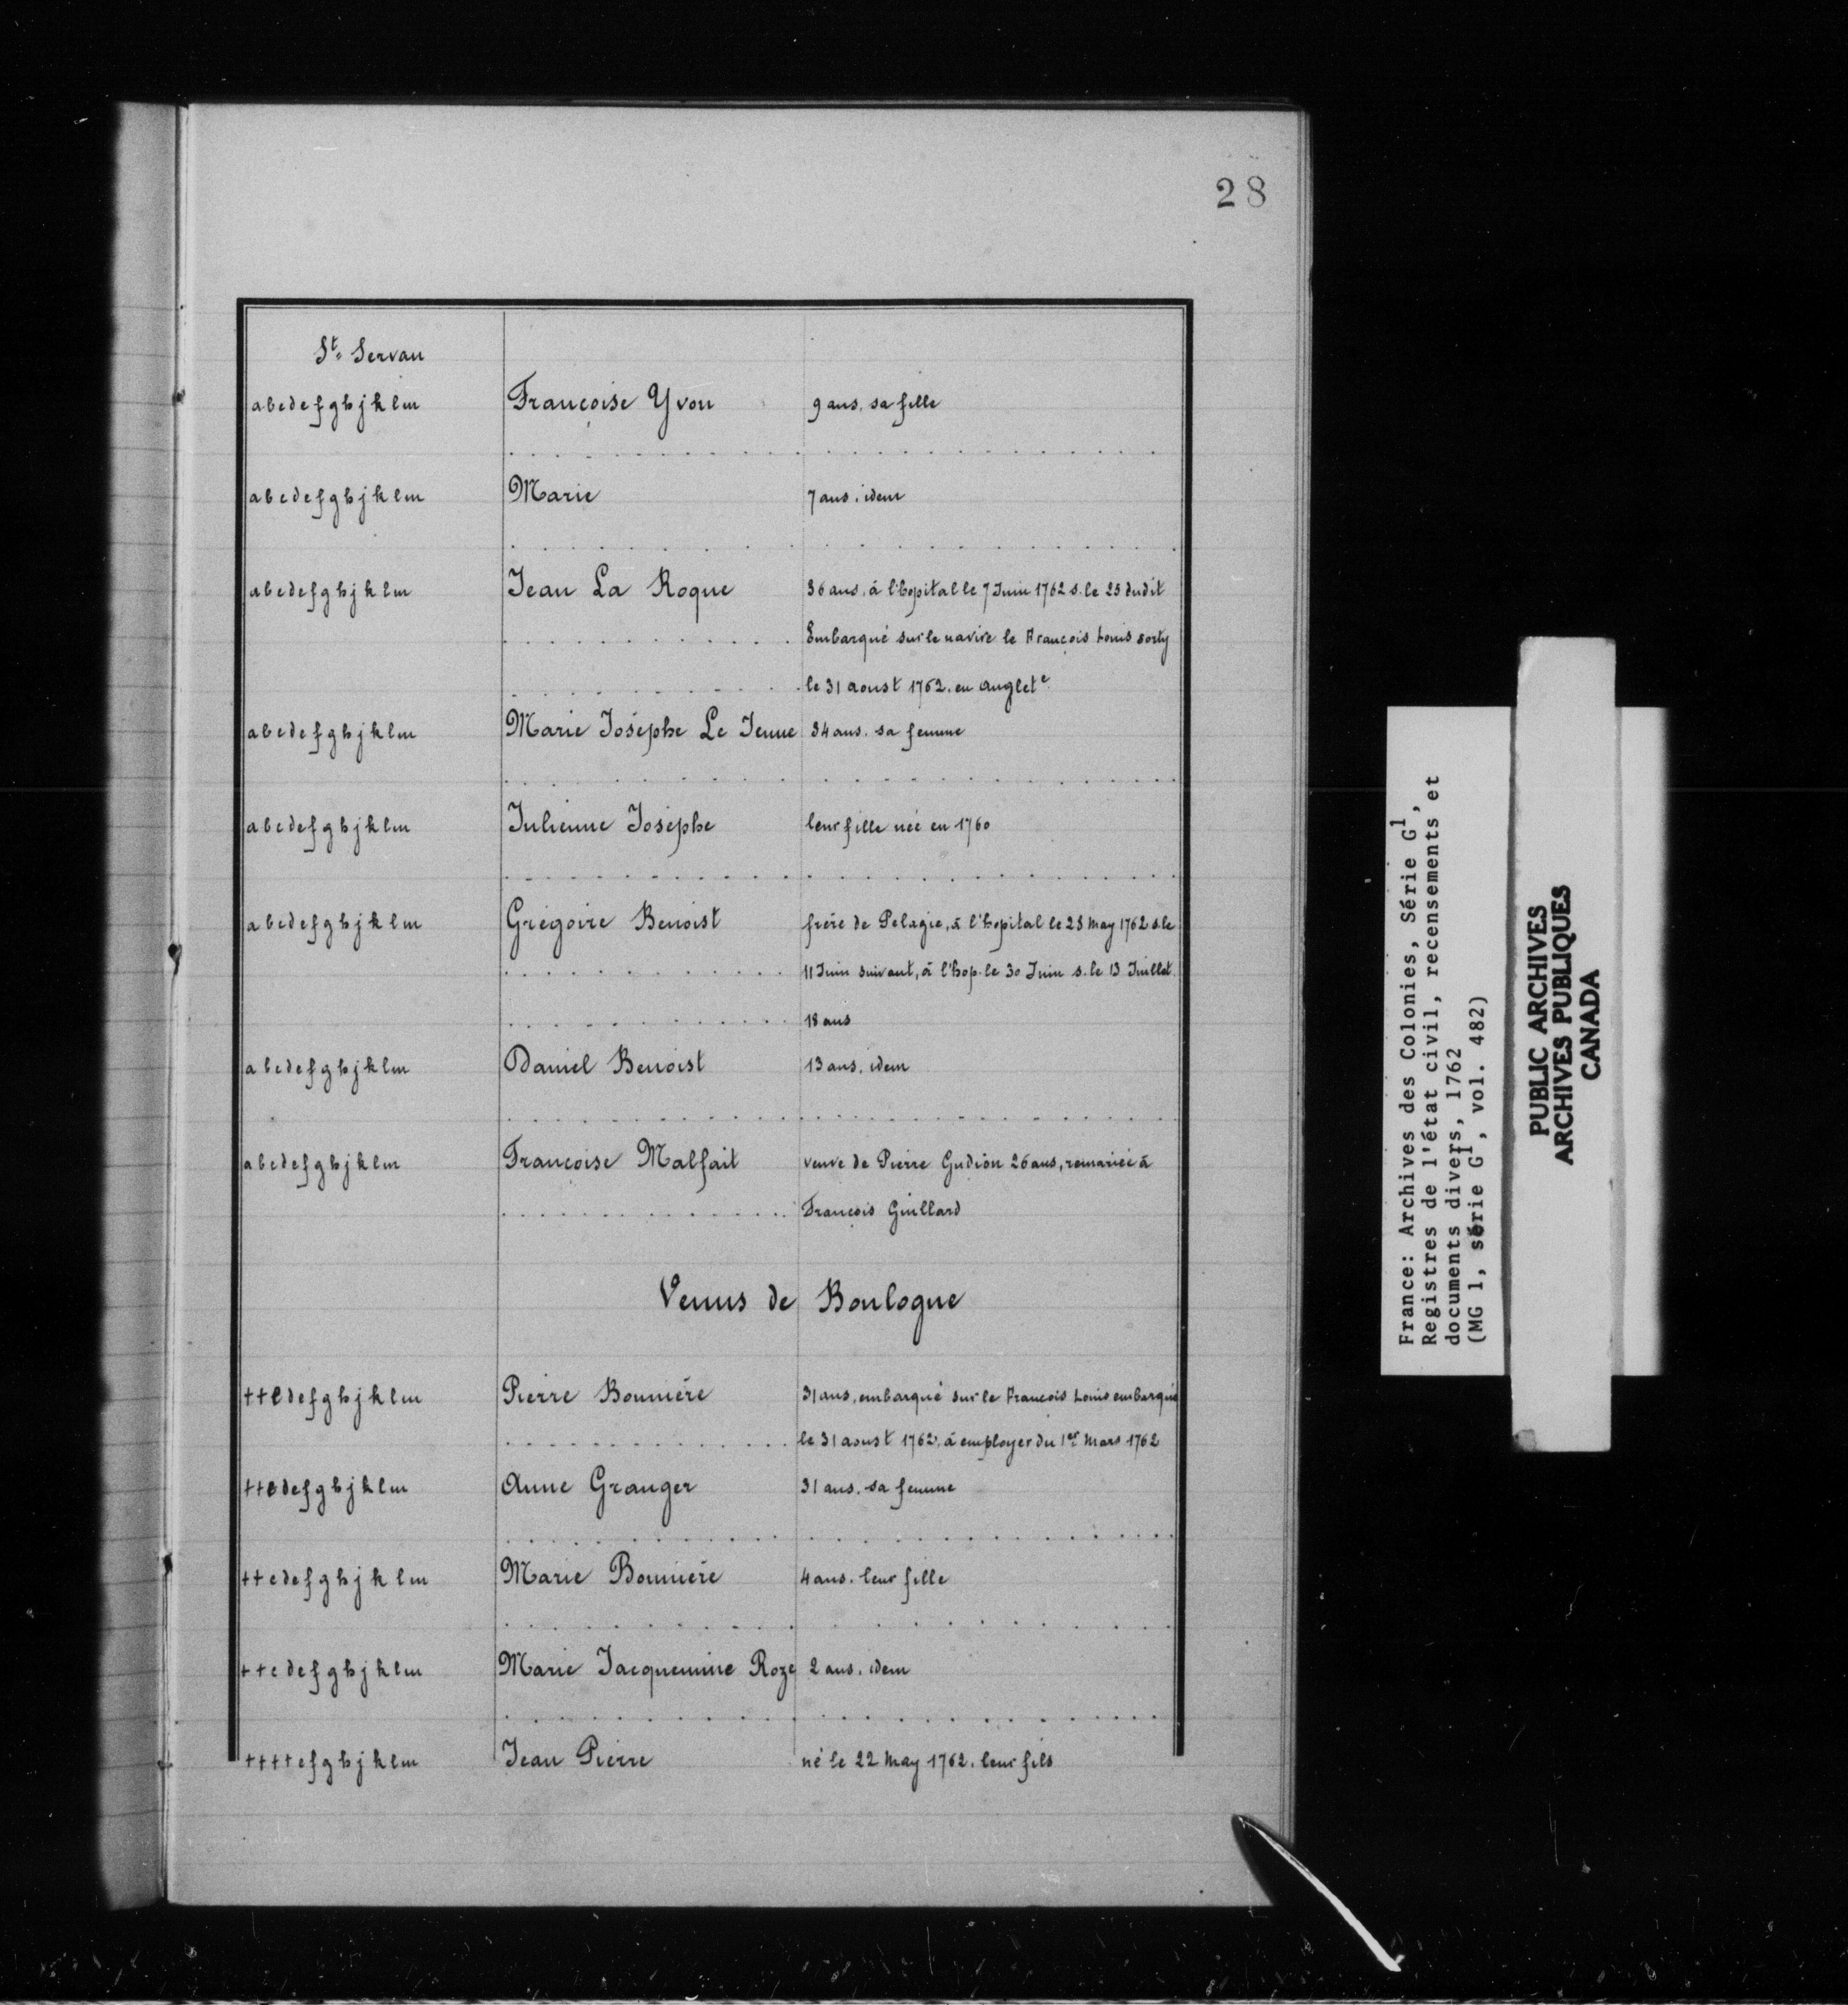 28
St. Servan
abcdefghjklm Françoise Yvon 9 ans, sa fille
abcdefghjklm Marie 7 ans, idem
abcdefghjklm Jean La Roque 36 ans, à l'hopital le 7 Juin 1762 s. le 25 dudit
Embarqué sur le navire le François Louis sorty
le 31 aoust 1762. en Anglete
abcdefghjklm Marie Josephe Le Jeune 34 ans. sa femme
abcdefghjklm Julienne Josephe leur fille née en 1760
abcdefghjklm Grégoire Benoist frère de Pelagie, à l'hopital le 23 May 1762 s. le
11 Juin suivant, à l'hop. le 30 Juin s. le 13 Juillet
18 ans
abcdefghjklm Daniel Benoist 13 ans, idem
abcdefghjklm Françoise Malfait veuve de Pierre Gudion 26 ans, remariée à
François Guillard
Venus de Boulogne
++cdefghjklm Pierre Bonnière 31 ans, embarqué sur le François Louis embarqué
le 31 aoust 1762, à employer du 1er Mars 1762
++cdefghjklm Anne Granger 31 ans. sa femme
++cdefghjklm Marie Bonnière 4 ans. leur fille
++cdefghjklm Marie Jacquemine Roze 2 ans. idem
++++efghjklm Jean Pierre né le 22 May 1762. leur fils
France: Archives des Colonies, Série G1,
Registres de l'état civil, recensements et
documents divers, 1762
(MG 1, série G1, vol. 482)
PUBLIC ARCHIVES
ARCHIVES PUBLIQUES
CANADA